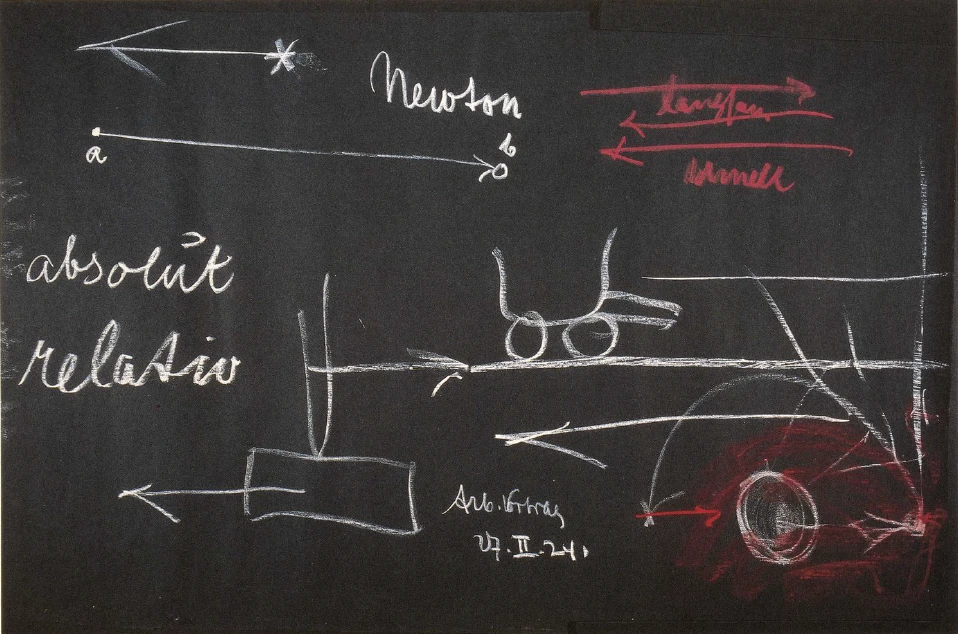 Newton
langsam
a
b
schnell
absolŭt
relativ
Arb. Vortrag
27.II.24.